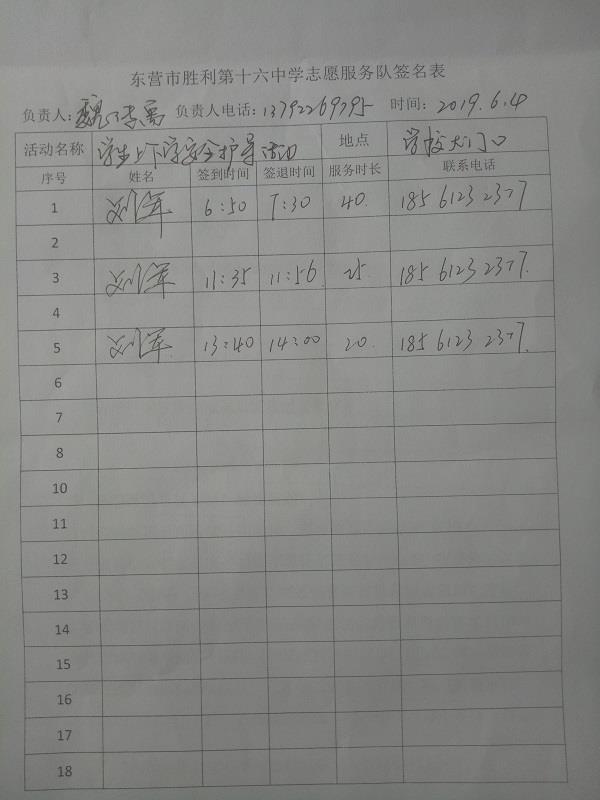 东营市胜利第十六中学志愿服务队签名表
负责人: 魏 负责人电话: 13792269795 时间: 2019.6.4
活动名称 学生上下学安全护导活动 地点 学校大门口
序号 姓名 签到时间 签退时间 服务时长 联系电话
1 刘军 6:50 7:30 40. 185 6123 2377
2
3 刘军 11:35 11:56 25 185 6123 2377.
4
5 刘军 13:40 14:00 20. 185 6123 2377.
6
7
8
10
11
12
13
14
15
16
17
18